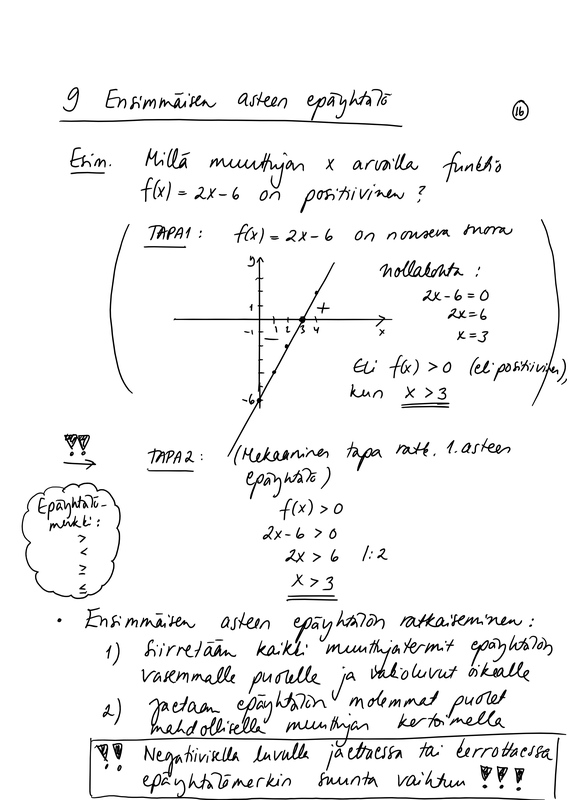 9 Ensimmäisen asteen epäyhtälö
16
Esim. Millä muuttujan x arvoilla funktio
f(x) = 2x-6 on positiivinen?
TAPA1: f(x) = 2x-6 on nouseva suora
nollakohta:
2x-6=0
2x=6
x=3
Eli f(x) > 0 (eli positiivinen),
kun x > 3
y
1
-1
1 2 3 4
x
+
-
-6
!! →
TAPA2: (Mekaaninen tapa ratk. 1. asteen
epäyhtälö)
f(x) > 0
2x-6 > 0
2x > 6 |:2
x > 3
Epäyhtälö-
merkki:
>
<
≥
≤
• Ensimmäisen asteen epäyhtälön ratkaiseminen:
1) Siirretään kaikki muuttujatermit epäyhtälön
vasemmalle puolelle ja vakioluvut oikealle
2) Jaetaan epäyhtälön molemmat puolet
mahdollisella muuttujan kertoimella
!! Negatiivisella luvulla jaettaessa tai kerrottaessa
epäyhtälömerkin suunta vaihtuu !!!